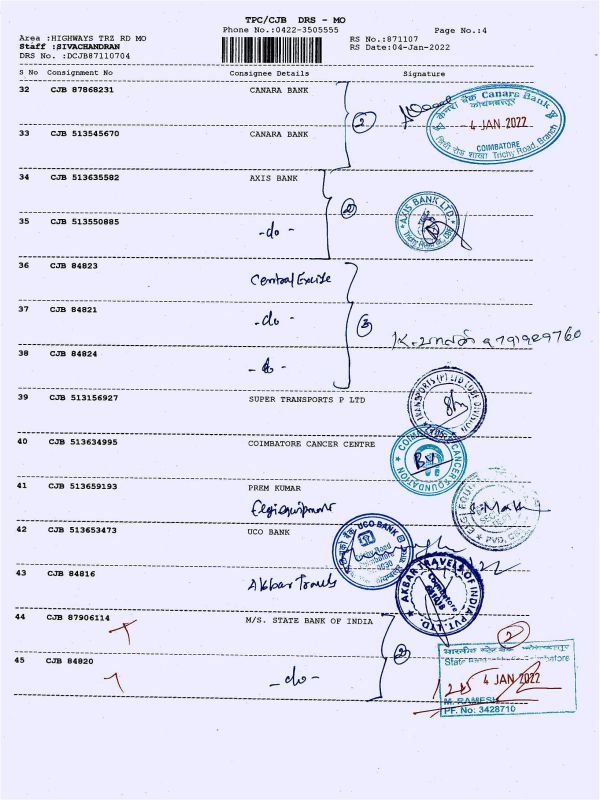 TPC/CJB DRS - MO
Phone No.:0422-3505555
Page No.:4
Area :HIGHWAYS TRZ RD MO
RS No.:871107
Staff :SIVACHANDRAN
RS Date:04-Jan-2022
DRS No. :DCJB87110704
S No Consignment No Consignee Details Signature
32 CJB 87868231 CANARA BANK
2
केनरा बैंक Canara Bank
कोयम्बत्तूर
- 4 JAN 2022
COIMBATORE
Trichy Road Branch
33 CJB 513545670 CANARA BANK
34 CJB 513635582 AXIS BANK
2
AXIS BANK LTD.
35 CJB 513550885 -do-
36 CJB 84823 Central Excise
37 CJB 84821 -do-
3
9791989760
38 CJB 84824
39 CJB 513156927 SUPER TRANSPORTS P LTD
TRANSPORTS (P) LTD
40 CJB 513634995 COIMBATORE CANCER CENTRE
CANCER FOUNDATION
41 CJB 513659193 PREM KUMAR
Elgi equipment
42 CJB 513653473 UCO BANK
UCO BANK
43 CJB 84816 Akbar Travels
AKBAR TRAVELS OF INDIA PVT. LTD.
Coimbatore
641018
44 CJB 87906114 M/S. STATE BANK OF INDIA
2
2
भारतीय स्टेट बैंक
4 JAN 2022
M. RAMESH
PF. No: 3428710
45 CJB 84820 -do-